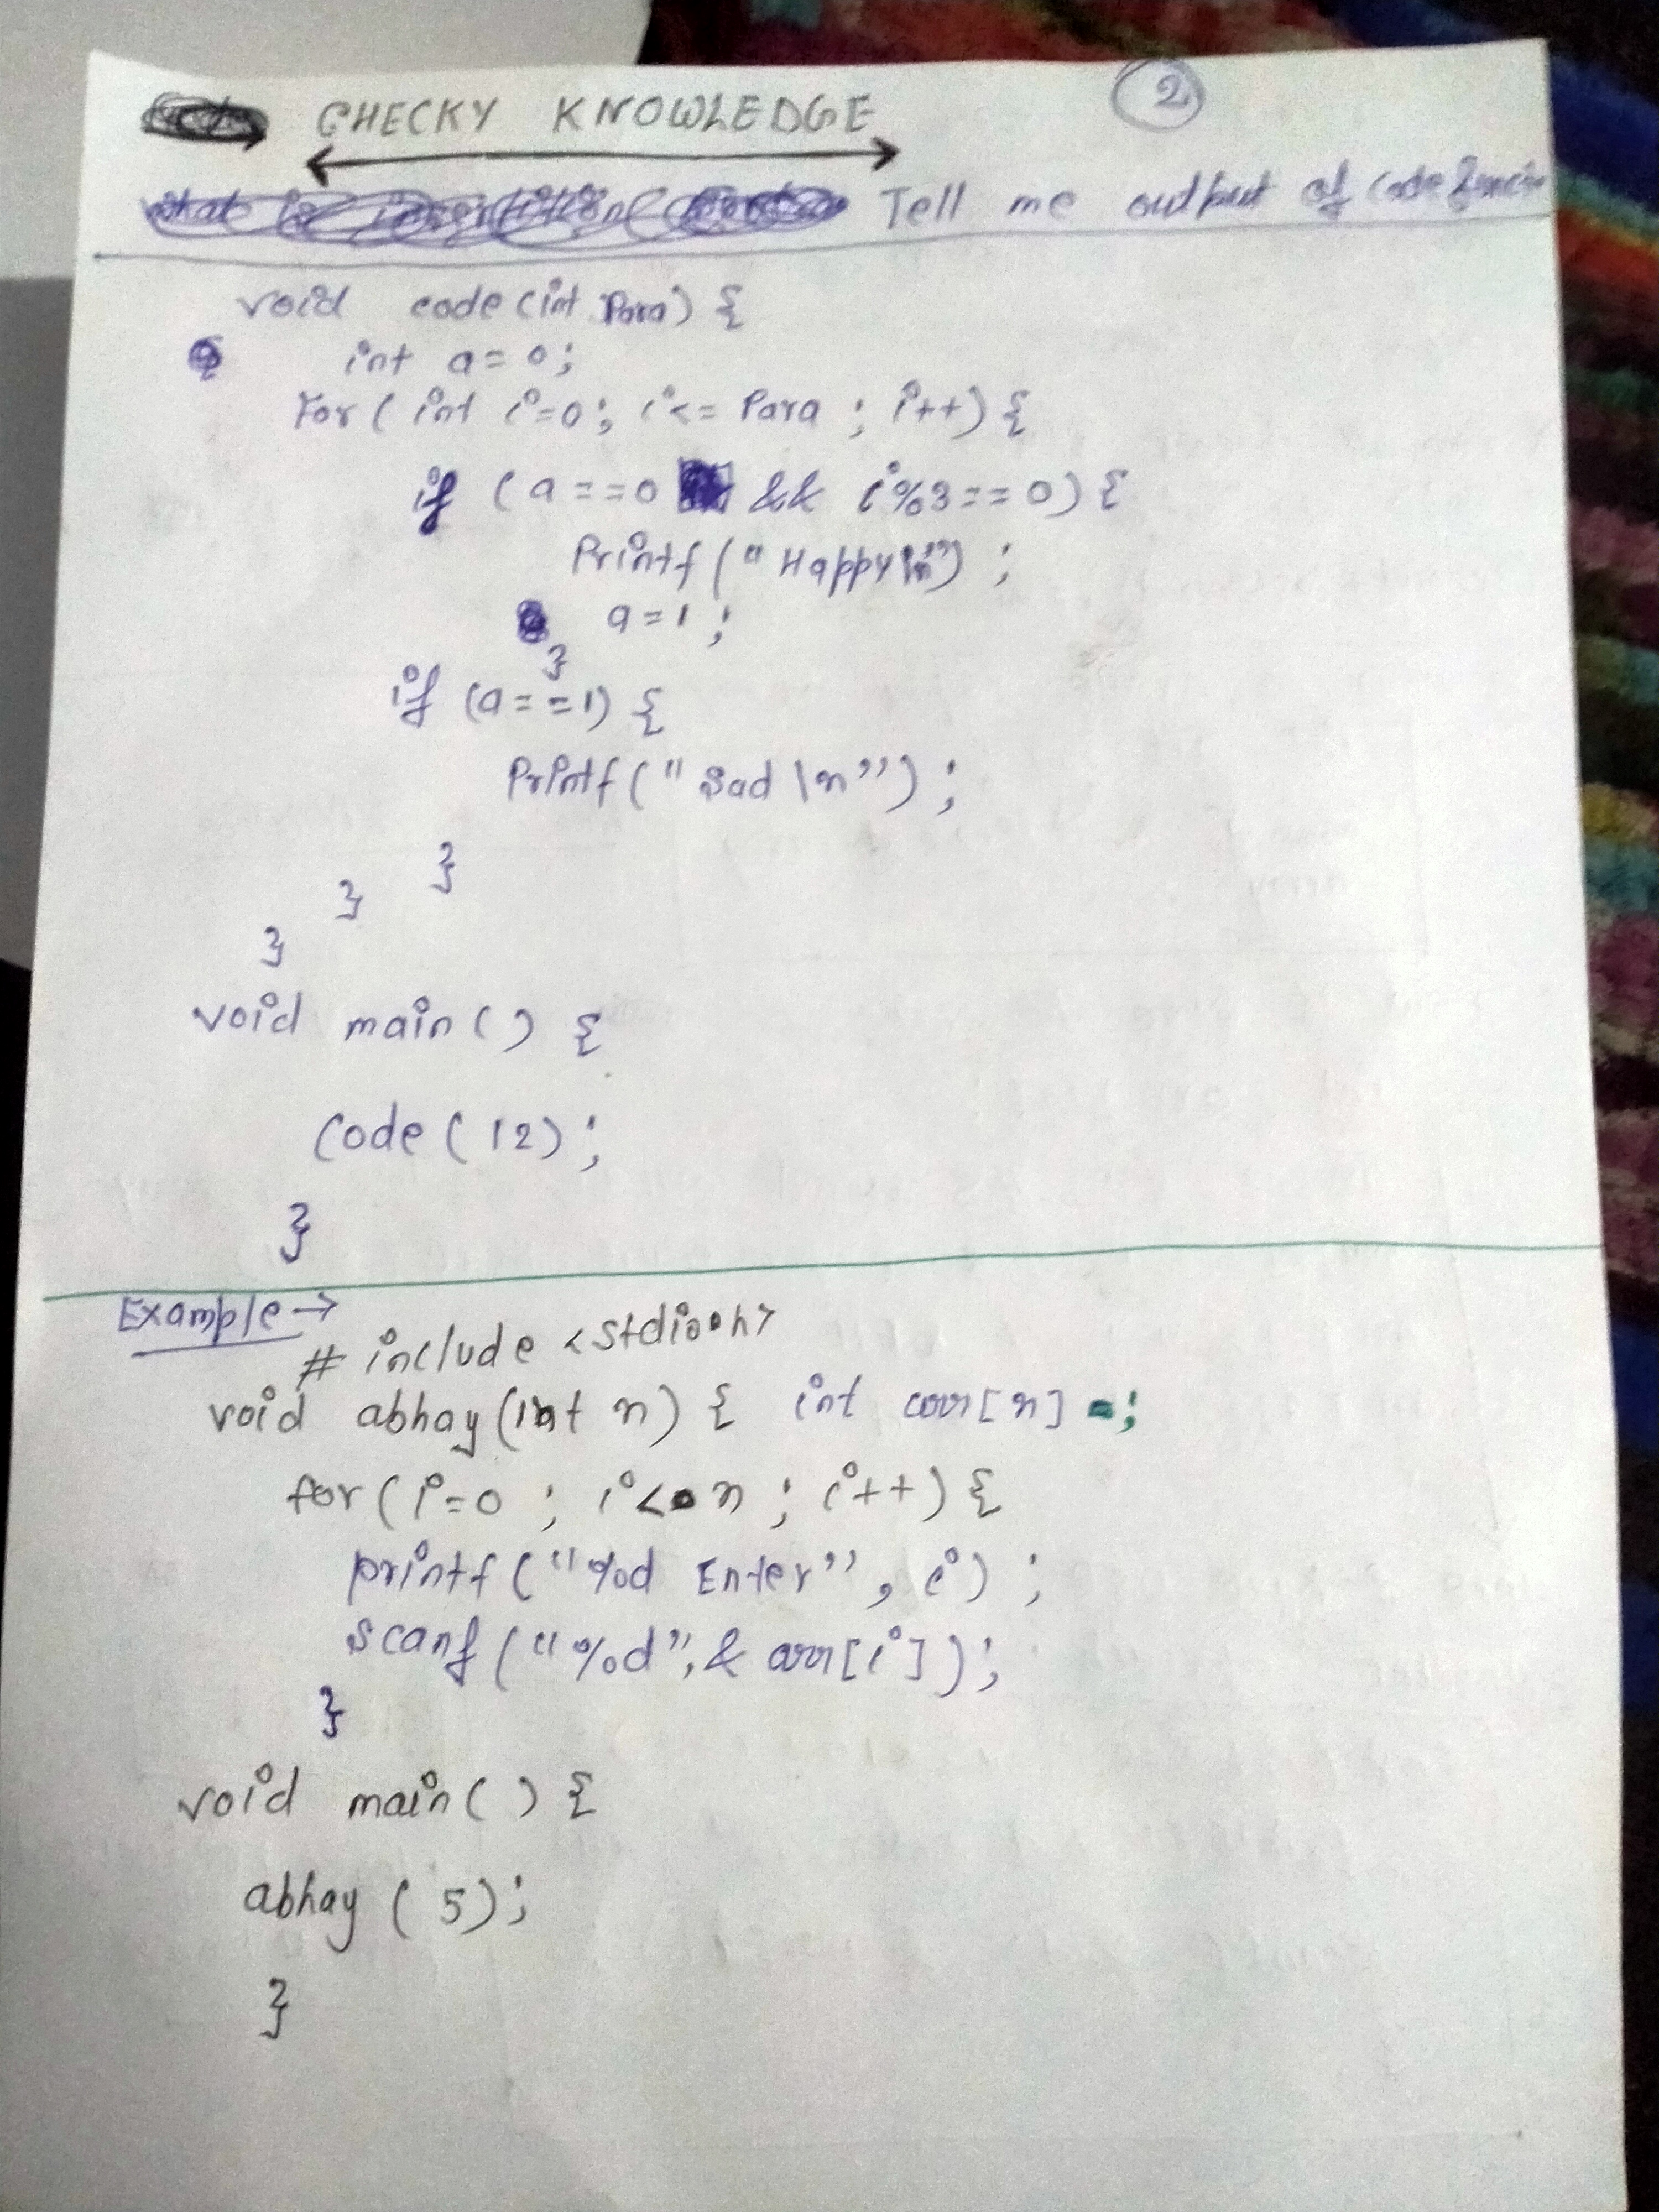 CHECKY KNOWLEDGE
2
Tell me output of code
void code(int Para) {
int a=0;
For( int i=0; i<= Para ; i++) {
if (a==0 && i%3==0) {
Printf("Happy\n") ;
a=1;
}
if (a==1) {
Printf("Sad \n");
}
}
}
void main() {
Code(12);
}
Example→
# include <stdio.h>
void abhay(int n) { int arr[n] ;
for(i=0 ; i< n ; i++) {
printf("%d Enter", i) ;
scanf("%d",& arr[i]);
}
void main() {
abhay( 5);
}